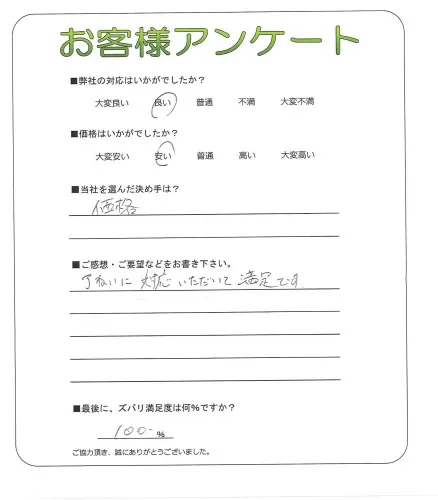 お客様アンケート
■弊社の対応はいかがでしたか？
大変良い 良い 普通 不満 大変不満
■価格はいかがでしたか？
大変安い 安い 普通 高い 大変高い
■当社を選んだ決め手は？
価格
■ご感想・ご要望などをお書き下さい。
丁ねいに 対応 いただいて 満足です
■最後に、ズバリ満足度は何％ですか？
100 %
ご協力頂き、誠にありがとうございました。